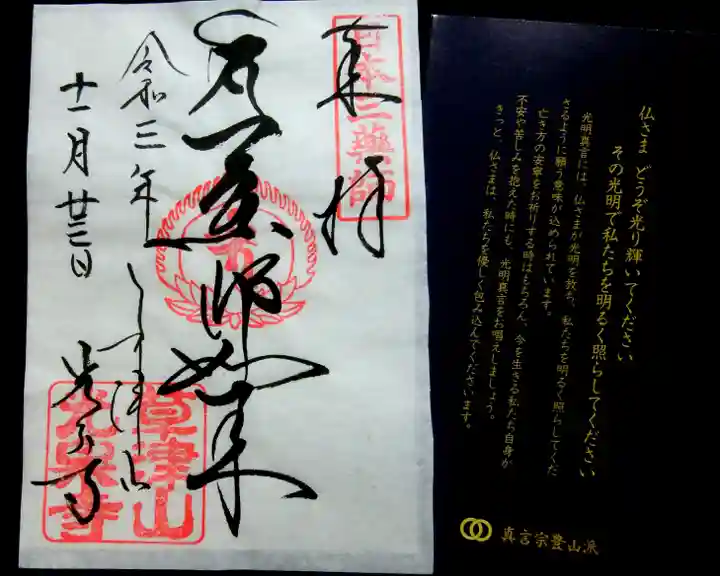 奉拝
日本三薬師
薬師如来
令和三年
十一月廿三日
くさつ山
光泉寺
草津山
光泉寺
仏さま どうぞ光り輝いてください
その光明で私たちを明るく照らしてください
光明真言には、仏さまが光明を放ち、私たちを明るく照らしてくだ
さるように願う意味が込められています。
亡き方の安寧をお祈りする時はもちろん、今を生きる私たち自身が
不安や苦しみを抱えた時にも、光明真言をお唱えしましょう。
きっと、仏さまは、私たちを優しく包み込んでくださいます。
真言宗豊山派